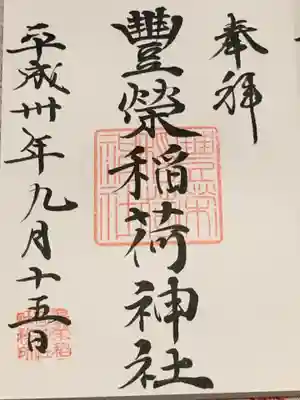 奉拝
豐榮稲荷神社
平成卅年九月十五日